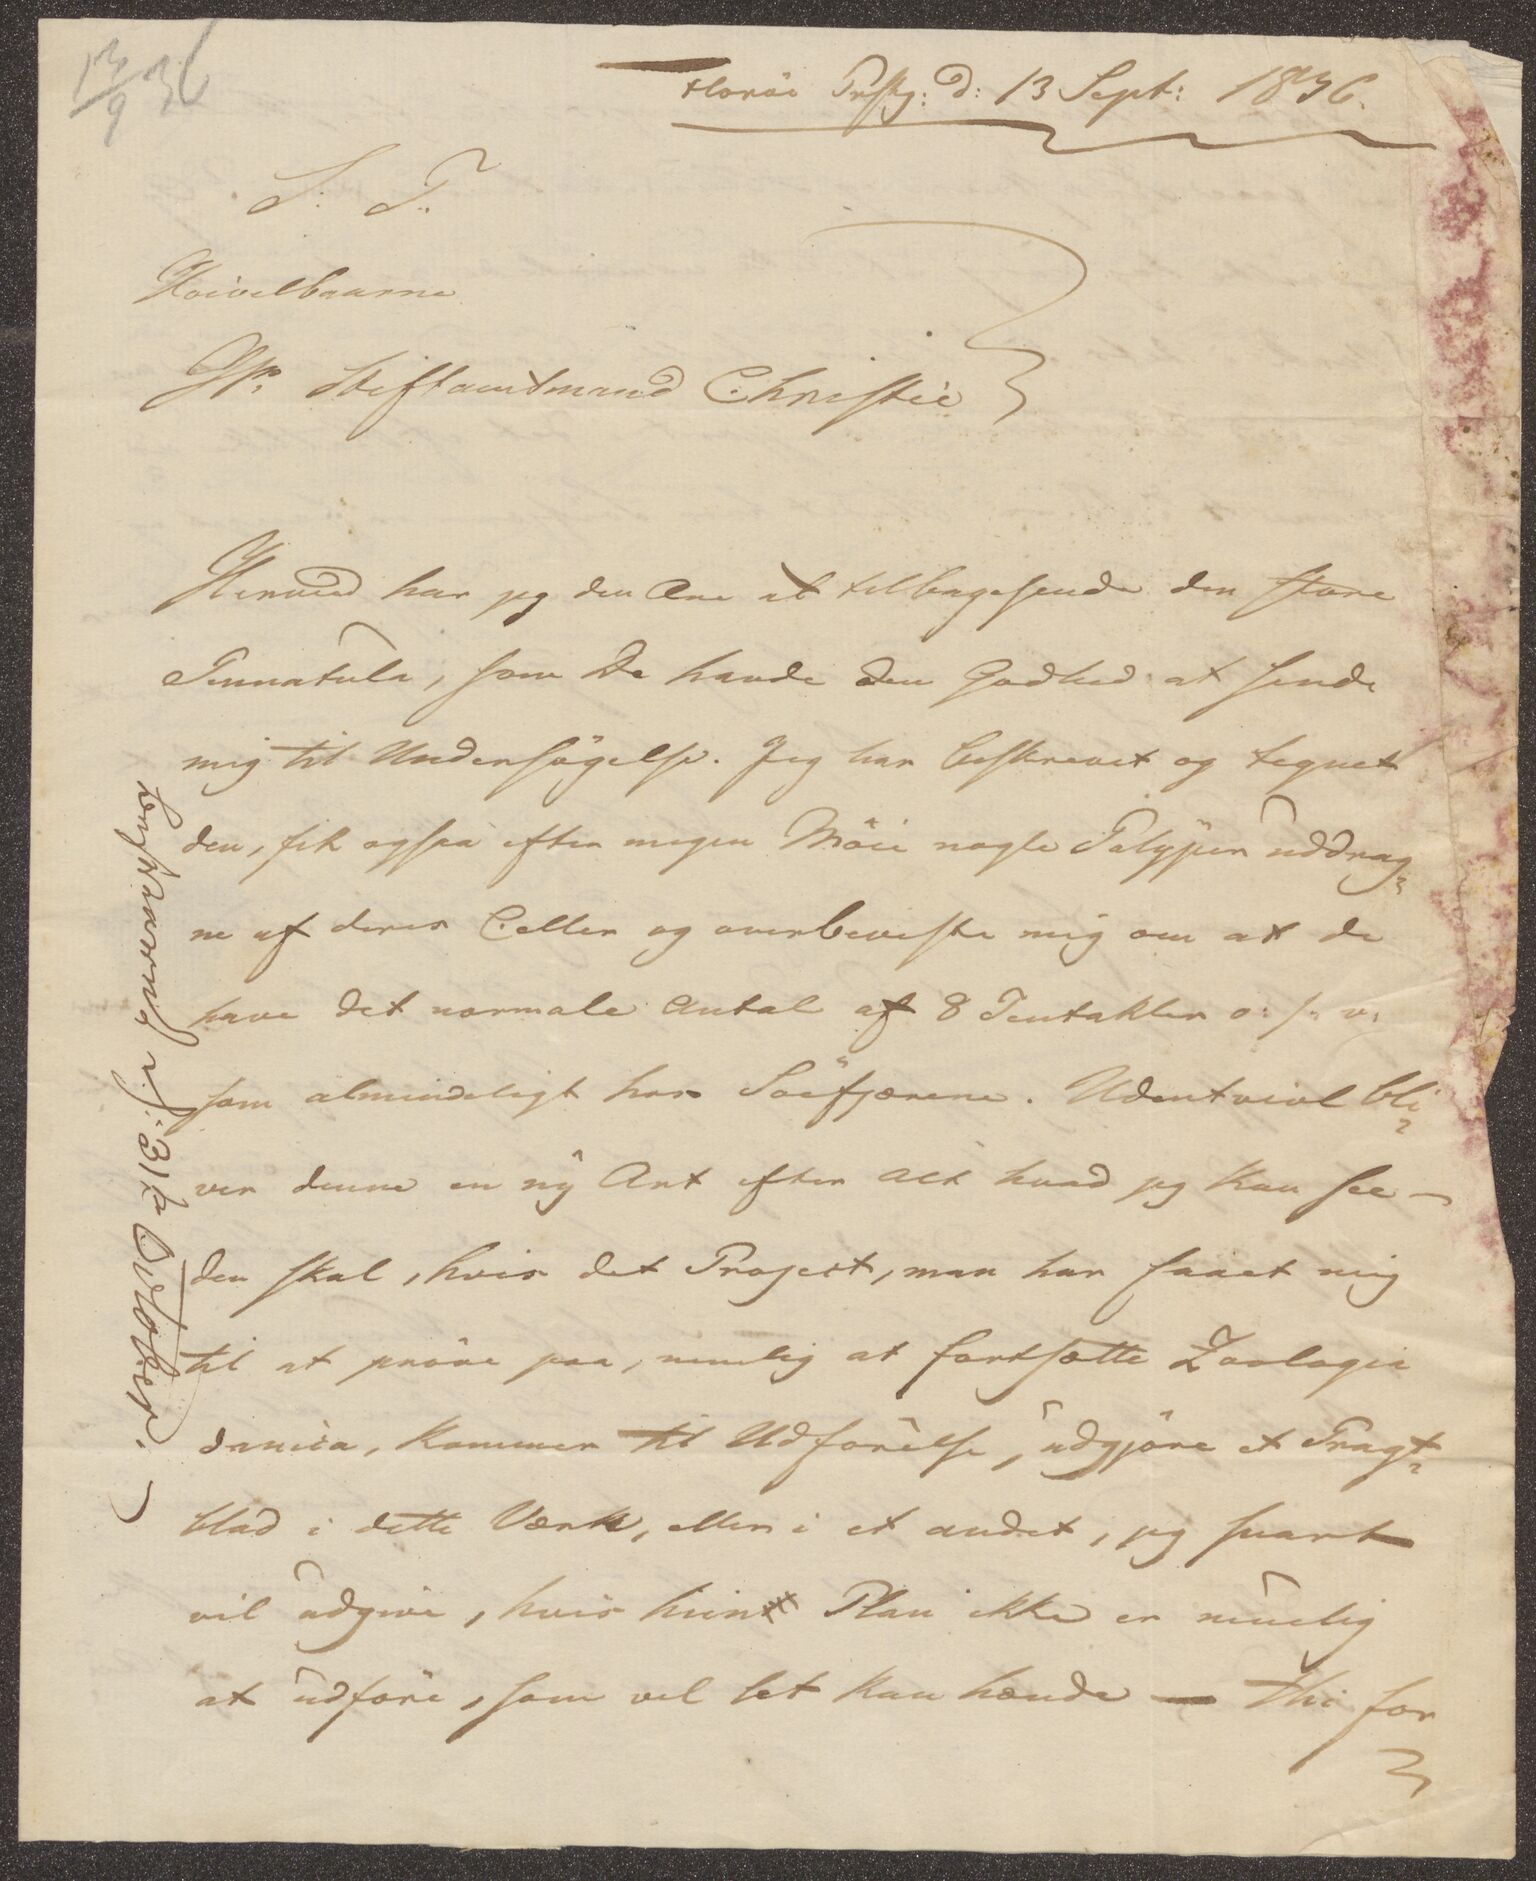 13/9 36
Florøe Prstg: d: 13 Sept: 1836.
S. T.
Høivelbaarne
Hr. Stiftamtmand Christie
Herved har jeg den Ære at tilbagesende den store
Pennatula, som De havde den Godhed at sende
mig til Undersøgelse. Jeg har beskrevet og tegnet
den, fik ogsaa efter megen Møie nogle Polyper uddrag-
ne af deres Celler og overbeviste mig om at de
have det normale Antal af 8 Tentakler o: s: v:
som almindeligt hos Søefjærene. Udentvivl bli-
ver denne en ny Art efter alt hvad jeg kan see —
den skal, hvis det Project, man har faaet mig
til at prøve paa, nemlig at fortsætte Zoologia
danica, kommer til Udførelse, udgjøre et Pragt-
blad i dette Værk, eller i et andet, jeg snart
vil udgive, hvis hin Plan ikke er muelig
at udføre, som vel let kan hænde — thi for
besvaret 31te October.